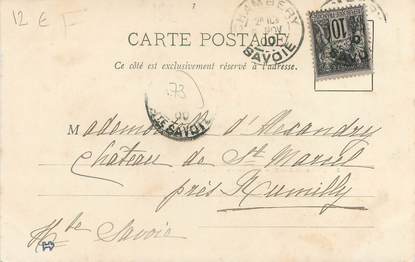 12 E F
CHAMBERY
SAVOIE
10
CARTE POSTALE
Ce côté est exclusivement réservé à l'adresse.
73
Hte SAVOIE
Madame R d'Alexandry
Château de St Marcel
près Rumilly
Hte Savoie